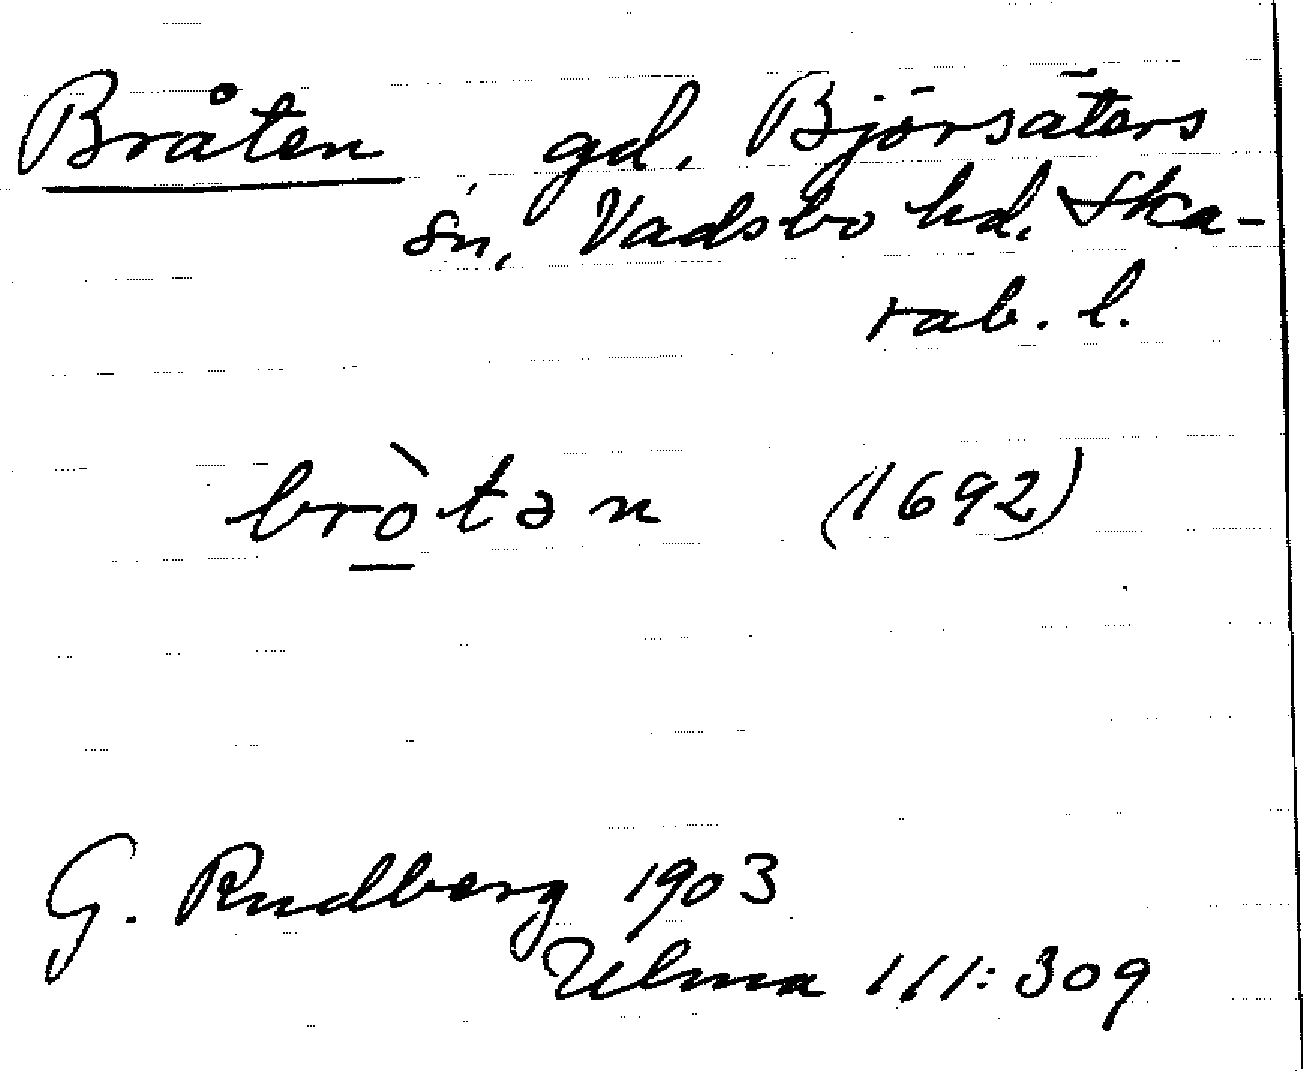 Bråten gd. Björsäters
sn, Vadsbo hd, Ska-
rab. l.
brò̲tən (1692)
G. Rudberg 1903
Ulma 111:309